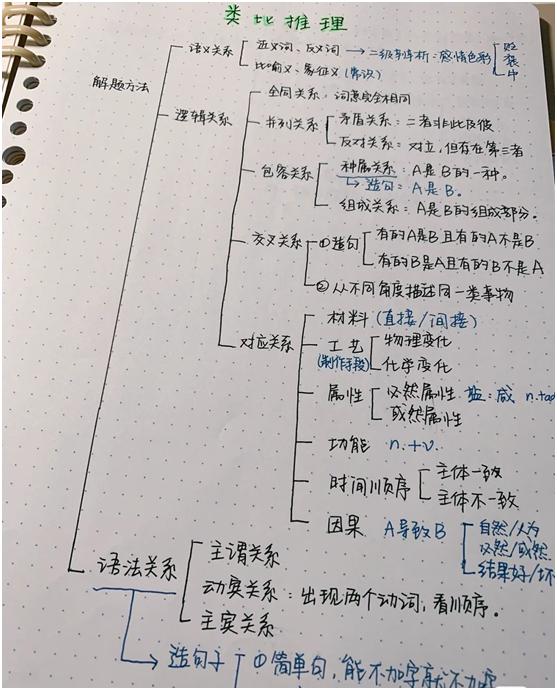 类比推理
解题方法
语义关系
近义词、反义词 → 二级辨析:感情色彩
贬
褒
中
比喻义、象征义(常识)
逻辑关系
全同关系:词意完全相同
并列关系
矛盾关系:二者非此及彼
反对关系:对立,但存在第三者
包容关系
种属关系:A是B的一种。
→ 造句:A是B。
组成关系:A是B的组成部分。
交叉关系
①造句
有的A是B且有的A不是B
有的B是A且有的B不是A
②从不同角度描述同一类事物
对应关系
材料(直接/间接)
工艺
(制作手段)
物理变化
化学变化
属性
必然属性 盐:咸
或然属性
功能 n.+v.
时间顺序
主体一致
主体不一致
因果 A导致B
自然/人为
必然/或然
结果好/坏
语法关系
主谓关系
动宾关系:出现两个动词,看顺序。
主宾关系
→ 造句子
①简单句,能不加字就不加